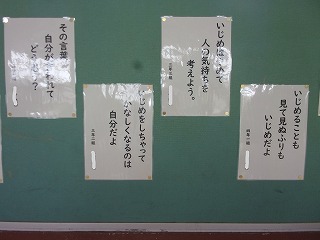 いじめることも
見て見ぬふりも
いじめだよ
四年一組
いじめはやめて
人の気持ちを
考えよう。
いじめをしちゃって
かなしくなるのは
自分だよ
三年二組
その言葉
自分が言われて
どう思う?